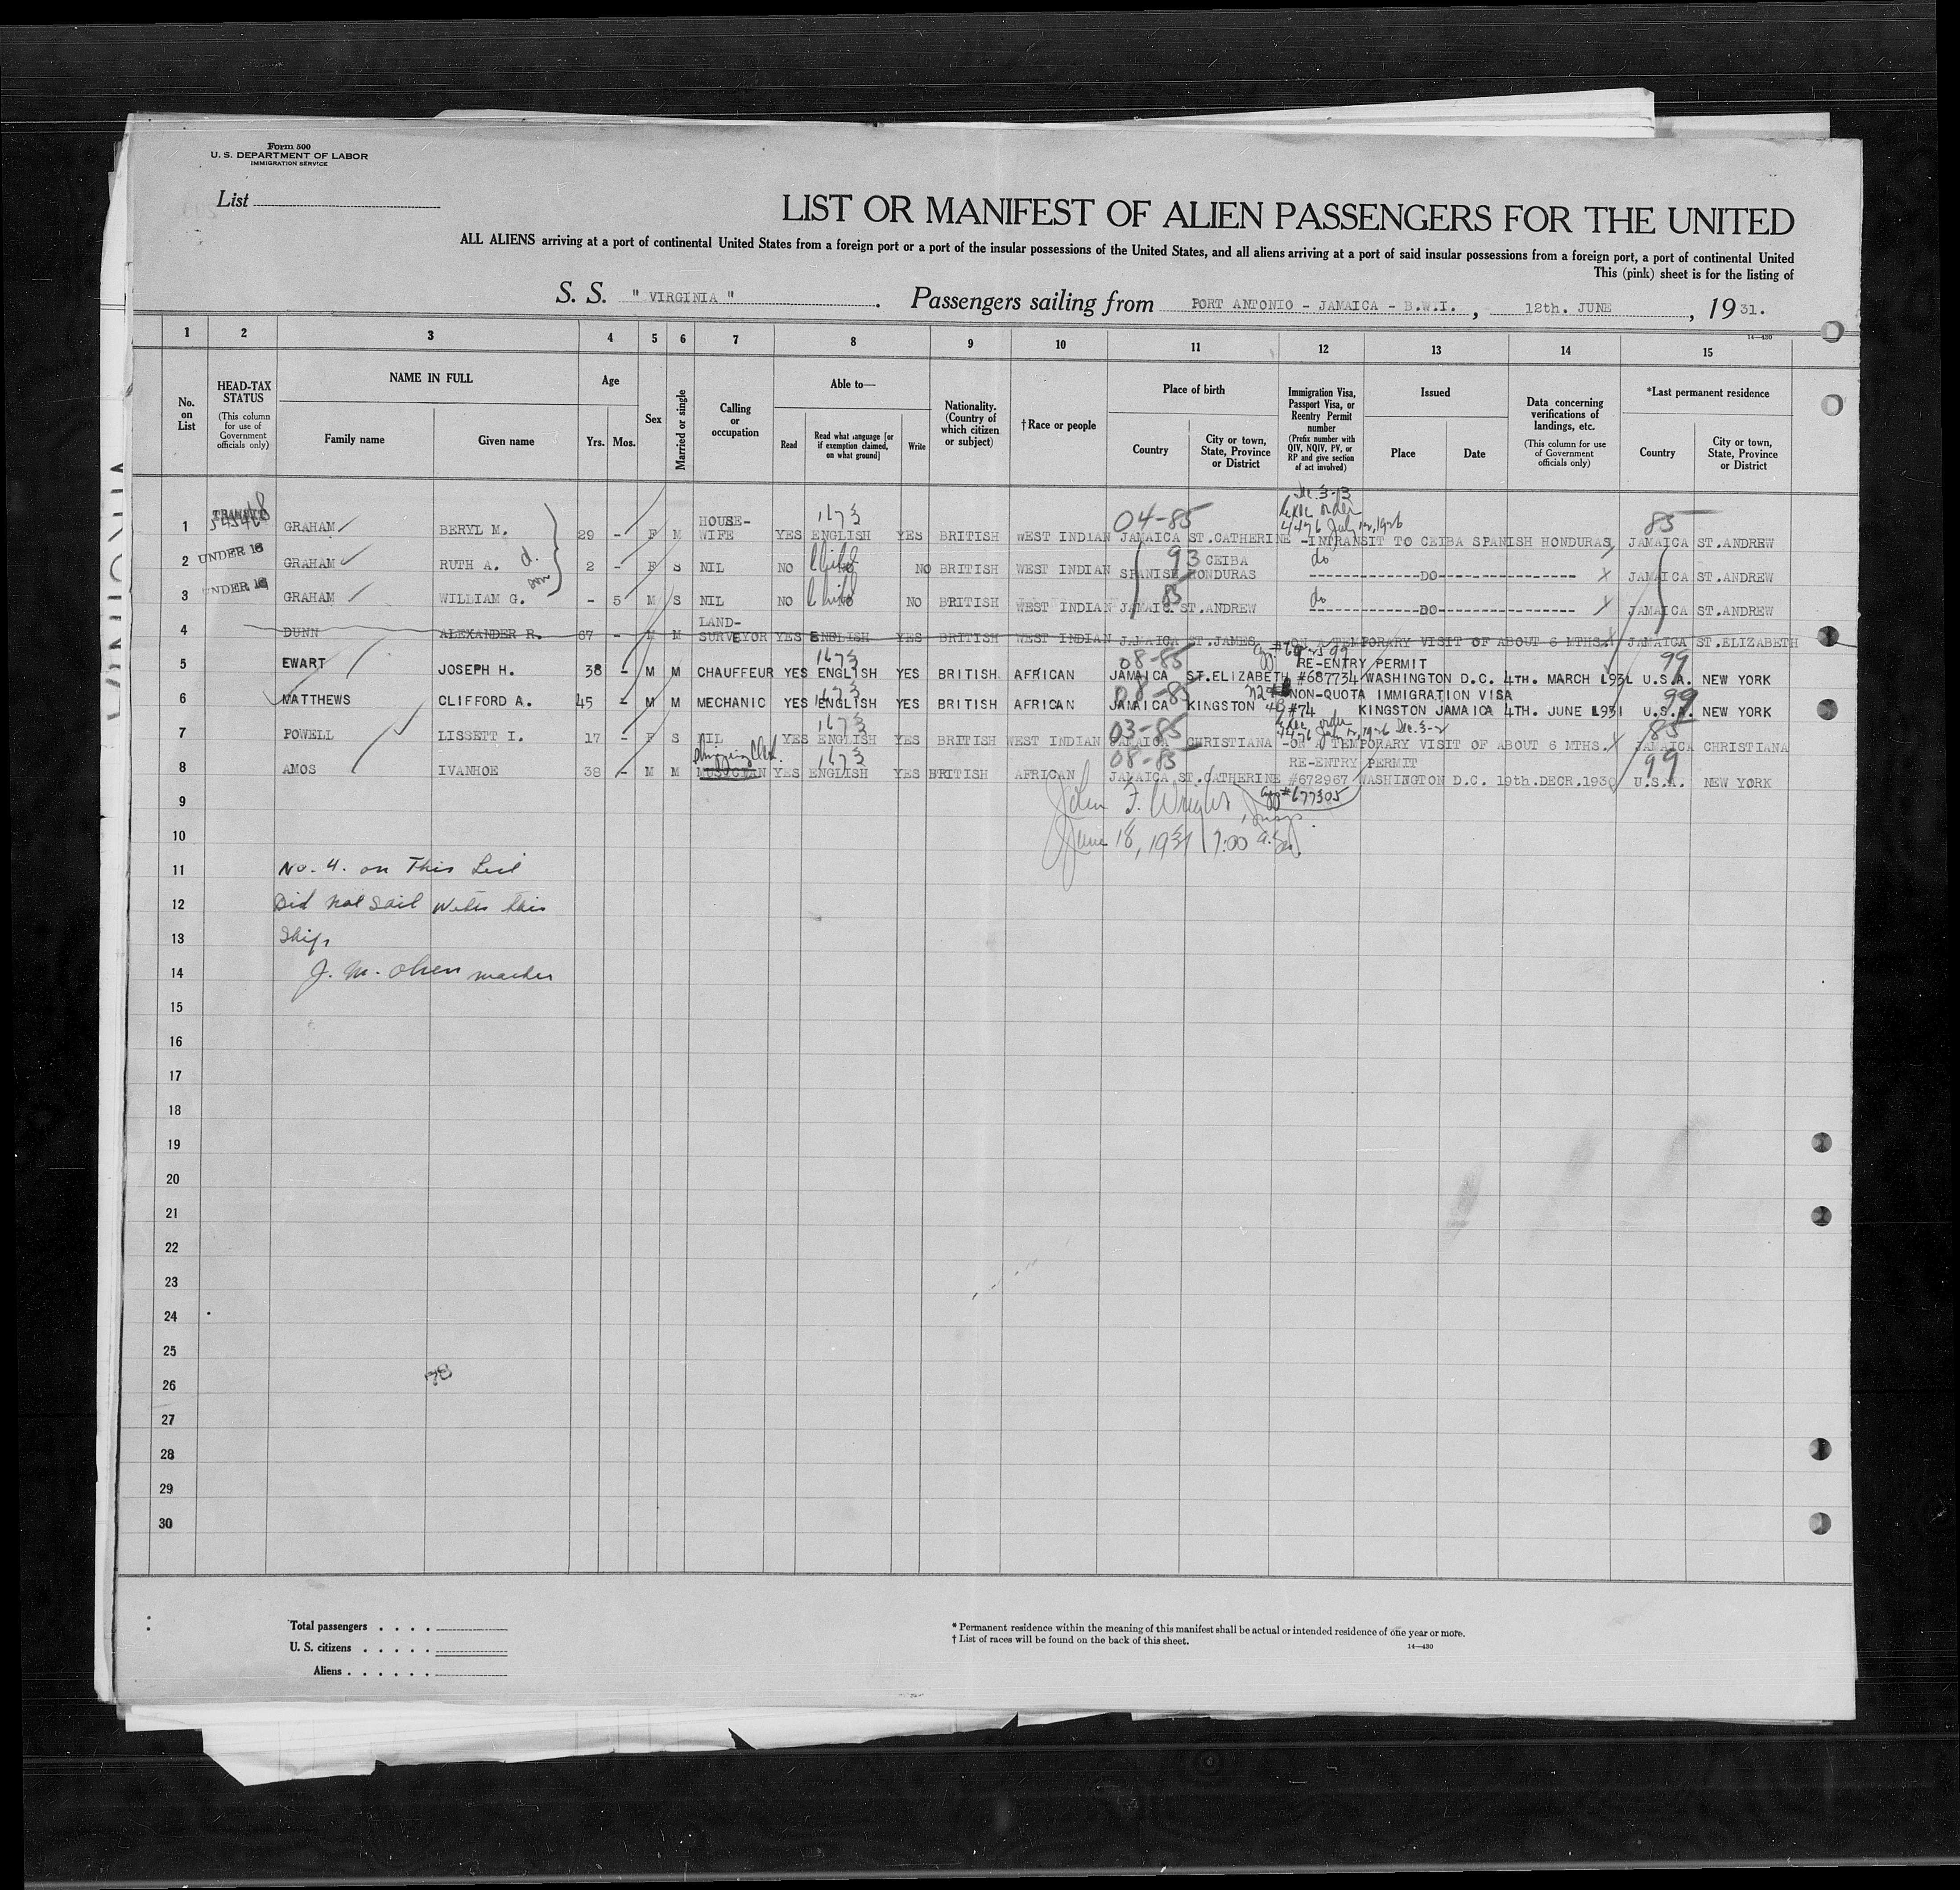 Form 500
U. S. DEPARTMENT OF LABOR
IMMIGRATION SERVICE
List
LIST OR MANIFEST OF ALIEN PASSENGERS FOR THE UNITED
ALL ALIENS arriving at a port of continental United States from a foreign port or a port of the insular possessions of the United States, and all aliens arriving at a port of said insular possessions from a foreign port, a port of continental United
This (pink) sheet is for the listing of
S. S. " VIRGINIA " . Passengers sailing from PORT ANTONIO - JAMAICA - B.W.I. , 12th. JUNE , 19 31.
14—430
1 2 3 4 5 6 7 8 9 10 11 12 13 14 15
No. on List
HEAD-TAX STATUS
(This column for use of Government officials only)
NAME IN FULL
Family name Given name
Age
Yrs. Mos.
Sex
Married or single
Calling or occupation
Able to—
Read Read what language [or if exemption claimed, on what ground] Write
Nationality. (Country of which citizen or subject)
†Race or people
Place of birth
Country City or town, State, Province or District
Immigration Visa, Passport Visa, or Reentry Permit number
(Prefix number with QIV, NQIV, PV, or RP and give section of act involved)
Issued
Place Date
Data concerning verifications of landings, etc.
(This column for use of Government officials only)
*Last permanent residence
Country City or town, State, Province or District
1673 04-85 Sec. 3-13 Exec order 4476 July 12, 1926 85
1 GRAHAM BERYL M. 29 - F M HOUSE-WIFE YES ENGLISH YES BRITISH WEST INDIAN JAMAICA ST.CATHERINE -INTRANSIT TO CEIBA SPANISH HONDURAS JAMAICA ST.ANDREW
2 UNDER 16 GRAHAM RUTH A. d. 2 - F S NIL NO Child NO BRITISH WEST INDIAN SPANISH HONDURAS 93 CEIBA do DO X JAMAICA ST.ANDREW
3 UNDER 16 GRAHAM WILLIAM G. son - 5 M S NIL NO Child NO BRITISH WEST INDIAN JAMAIC 85 ST.ANDREW do DO X JAMAICA ST.ANDREW
4 DUNN ALEXANDER R. 67 - M M LAND-SURVEYOR YES ENGLISH YES BRITISH WEST INDIAN JAMAICA ST.JAMES -ON A TEMPORARY VISIT OF ABOUT 6 MTHS. JAMAICA ST.ELIZABETH
1673 08-85 RE-ENTRY PERMIT 99
5 EWART JOSEPH H. 38 - M M CHAUFFEUR YES ENGLISH YES BRITISH AFRICAN JAMAICA ST.ELIZABETH #687734 WASHINGTON D.C. 4TH. MARCH 1931 U.S.A. NEW YORK
1673 08-85 NON-QUOTA IMMIGRATION VISA 99
6 MATTHEWS CLIFFORD A. 45 - M M MECHANIC YES ENGLISH YES BRITISH AFRICAN JAMAICA KINGSTON #74 KINGSTON JAMAICA 4TH. JUNE 1931 U.S.A. NEW YORK
1673 03-85 Exec order 4476 July 12, 1926 Sec. 3-2 85
7 POWELL LISSETT I. 17 - F S NIL YES ENGLISH YES BRITISH WEST INDIAN JAMAICA CHRISTIANA -ON A TEMPORARY VISIT OF ABOUT 6 MTHS. JAMAICA CHRISTIANA
1673 08-85 RE-ENTRY PERMIT 99
8 AMOS IVANHOE 38 - M M MUSICIAN YES ENGLISH YES BRITISH AFRICAN JAMAICA ST.CATHERINE #672967 WASHINGTON D.C. 19th.DECR.1930 U.S.A. NEW YORK
9 John F. Wright, Insp. app #677305
10 June 18, 1931 7:00 a.m.
11 No. 4. on This List
12 Did not sail with this
13 Ship
14 J. M. Olsen master
15
16
17
18
19
20
21
22
23
24
25
26 78
27
28
29
30
Total passengers . . . .
U. S. citizens . . . . .
Aliens . . . . . .
* Permanent residence within the meaning of this manifest shall be actual or intended residence of one year or more.
† List of races will be found on the back of this sheet.
14—430